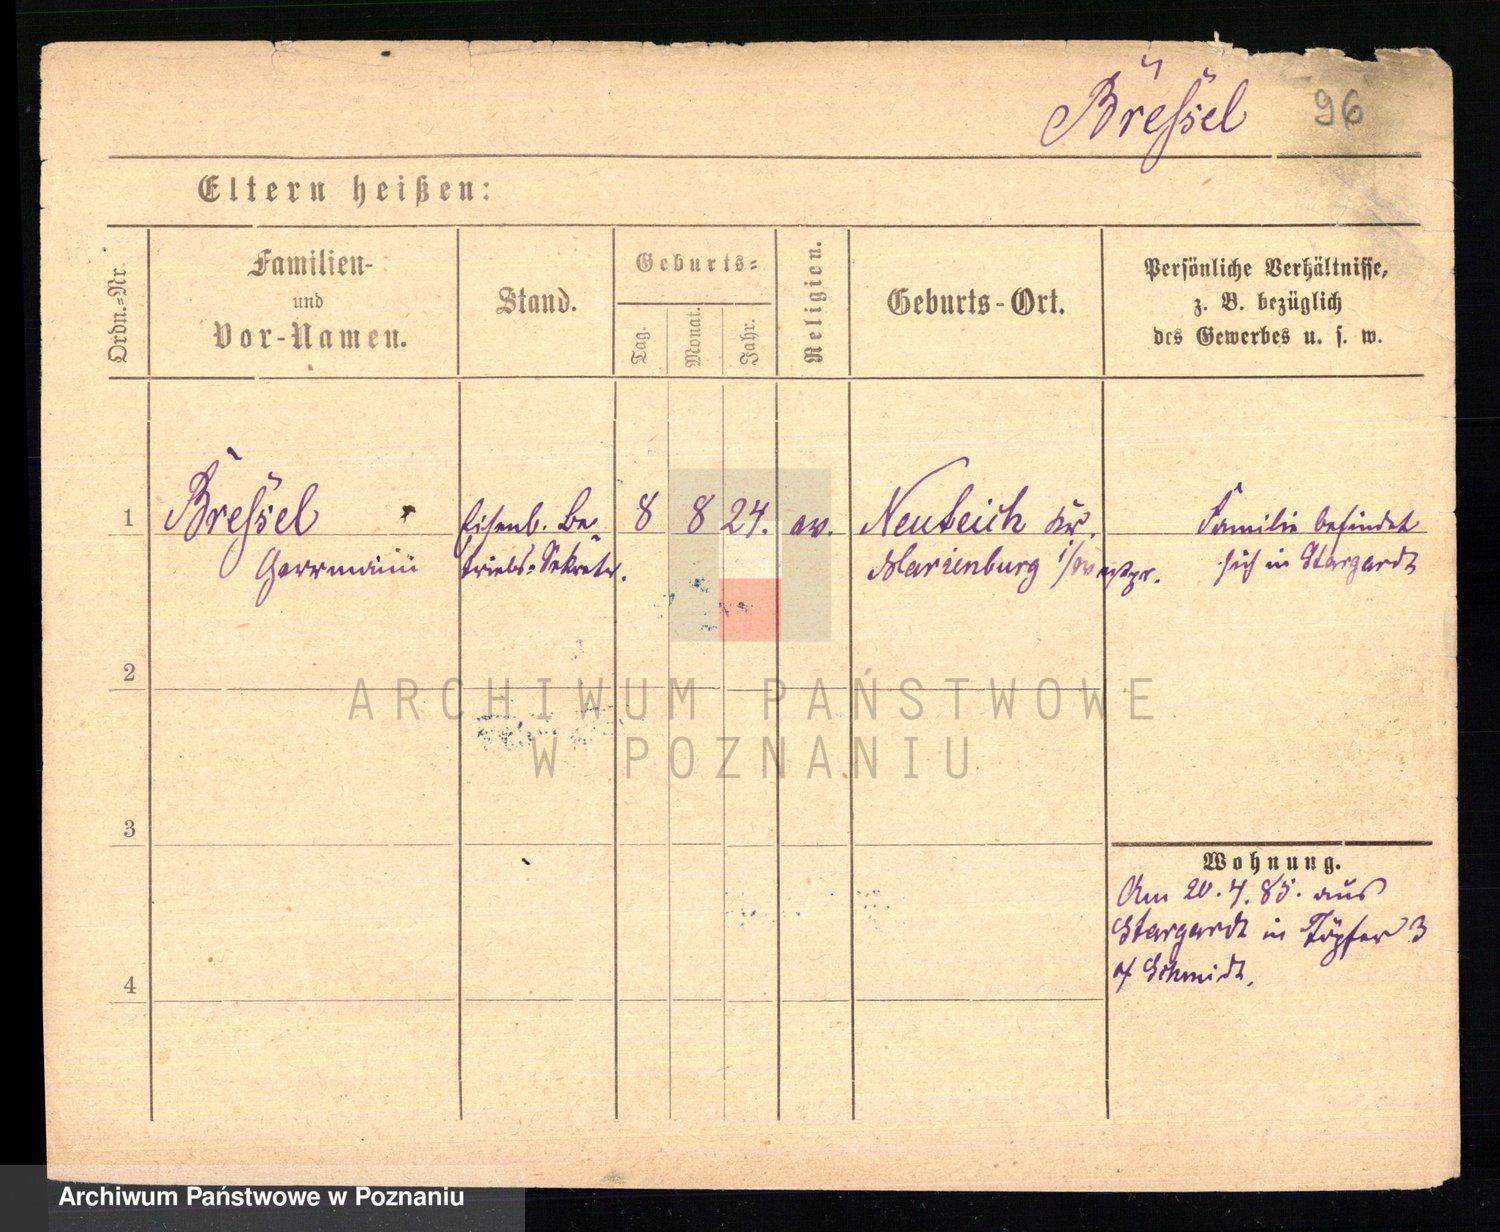 Breſsel
96
Eltern heißen:
Ordn.=Nr.
Familien-
und
Vor-Namen.
Stand.
Geburts=
Tag.
Monat.
Jahr.
Religion.
Geburts-Ort.
Persönliche Verhältnisse,
z. B. bezüglich
des Gewerbes u. s. w.
1
Breſsel
Herrmann
Eisenb. Be
triebs=Sekretr.
8
8
24.
ev.
Neuteich Kr.
Marienburg i/Westpr.
Familie befindet
sich in Stargardt
2
ARCHIWUM PAŃSTWOWE
W POZNANIU
3
Wohnung.
Am 20.4.85. aus
Stargardt in Töpfer 3
Schmidt.
4
Archiwum Państwowe w Poznaniu